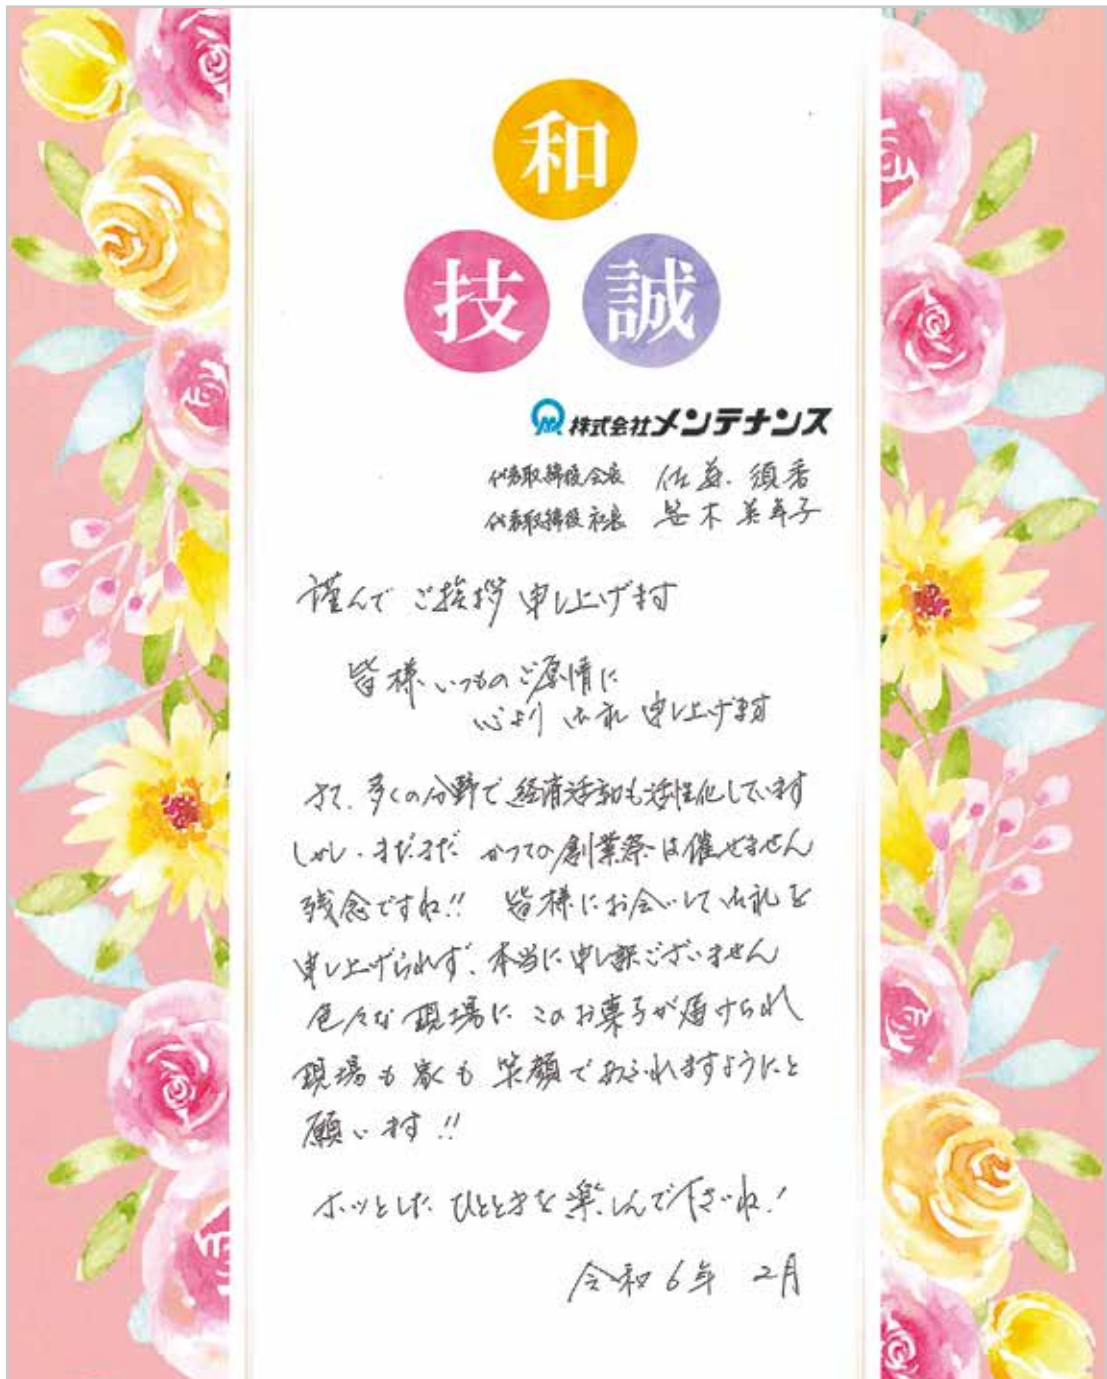 和
技 誠
株式会社メンテナンス
代表取締役会長 佐藤 須香
代表取締役社長 笠木 美年子
謹んで ご挨拶 申し上げます
皆様、いつものご厚情に
心より 御礼 申し上げます
さて、多くの分野で経済活動も活性化しています
しかし、まだまだ かつての創業祭は催せません
残念ですね!! 皆様にお会いして御礼を
申し上げられず、本当に申し訳ございません
色々な現場に このお菓子が届けられ
現場も 家も 笑顔であふれますようにと
願います!!
ホッとした ひとときを楽しんで下さいね!
令和6年 2月